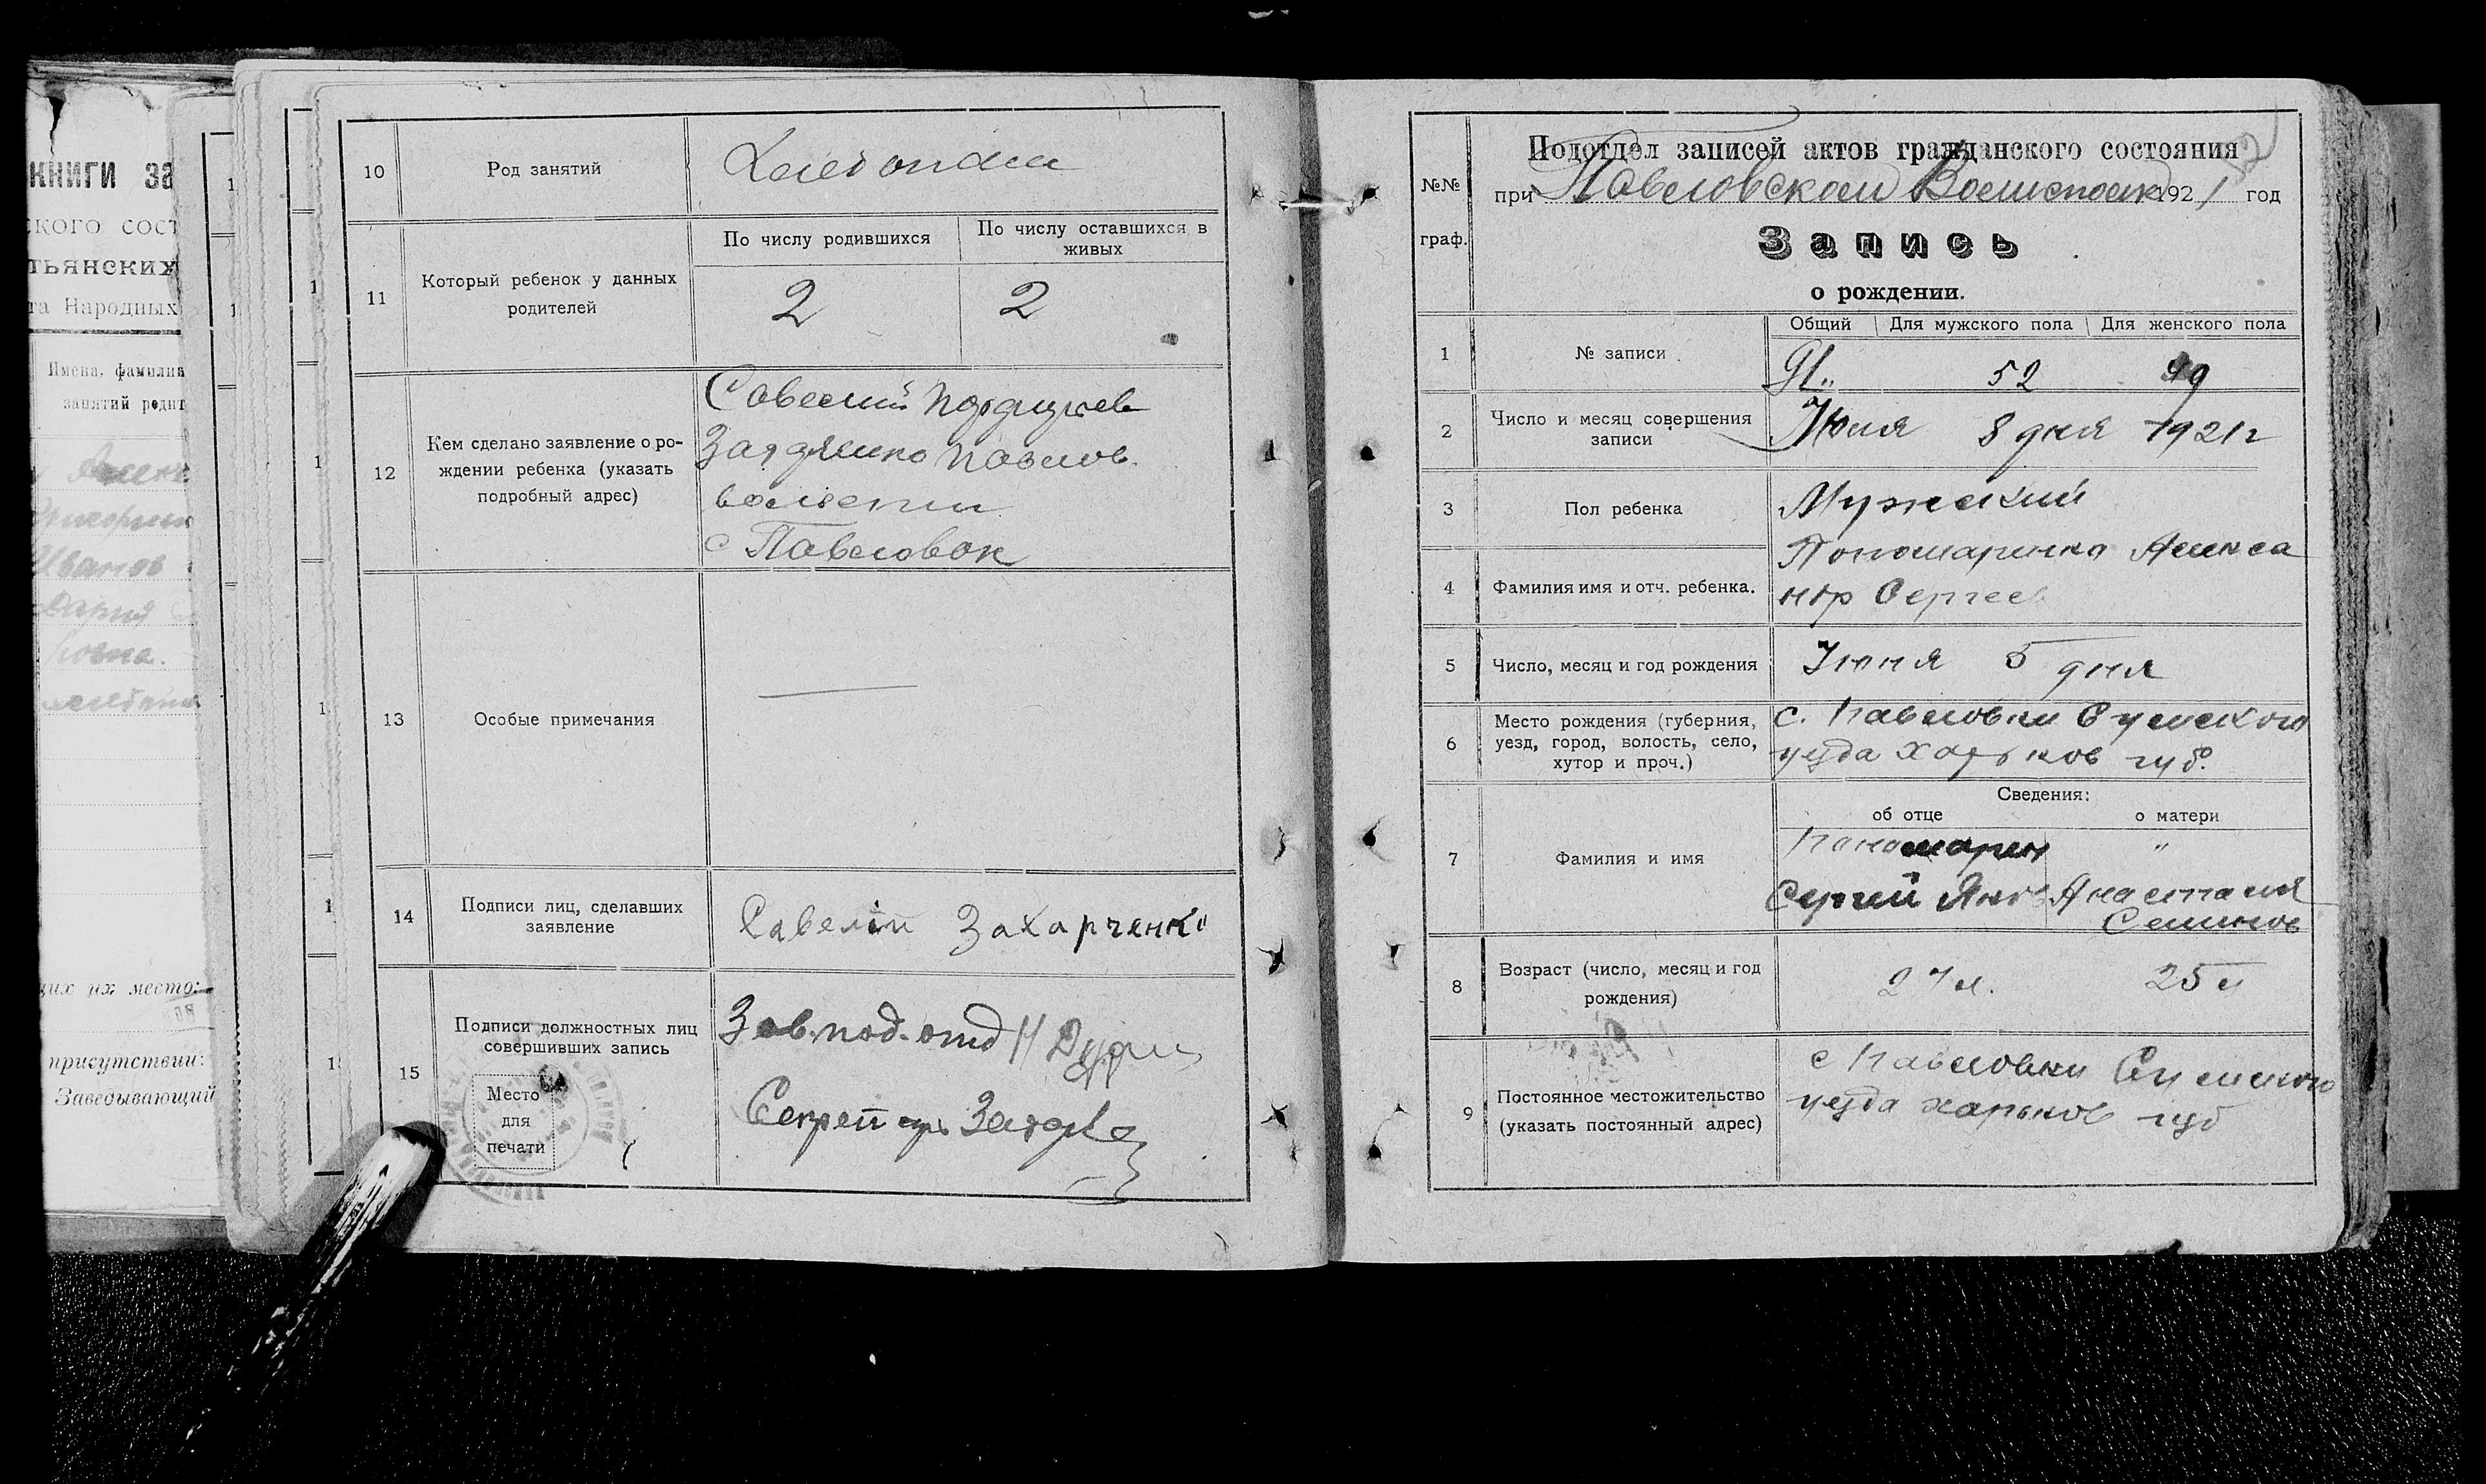 книги за
ского сост
тьянских
та Народных
Имена, фамилия
занятий родит
Иванов
Дария
щих их место:
присутствии:
Заведывающий
10 Род занятий
11 Который ребенок у данных родителей
По числу родившихся
По числу оставшихся в живых
2 2
12 Кем сделано заявление о ро-
ждении ребенка (указать
подробный адрес)
волости
с Павловок
13 Особые примечания
14 Подписи лиц, сделавших
заявление
Савелій Захарченко
15 Подписи должностных лиц
совершивших запись
Место
для
печати
Зав. под. отд
Секрет
№№
граф.
Подотдел записей актов гражданского состояния
при Павловском 1921 год
Запись
о рождении.
Общий Для мужского пола Для женского пола
1 № записи
91 52
2 Число и месяц совершения
записи
8 дня 1921 г
3 Пол ребенка
Мужский
4 Фамилия имя и отч. ребенка.
Пономаринко Алекса
ндр Сергеев
5 Число, месяц и год рождения
Июня 5 дня
6 Место рождения (губерния,
уезд, город, волость, село,
хутор и проч.)
с. Павловки Сумского
уезда Харьков губ.
Сведения:
об отце о матери
7 Фамилия и имя
Пономарен "
Сергий Яков Анастасия
Семинов
8 Возраст (число, месяц и год
рождения)
27 л. 25 л
9 Постоянное местожительство
(указать постоянный адрес)
с Павловки Сумского
уезда харьков губ